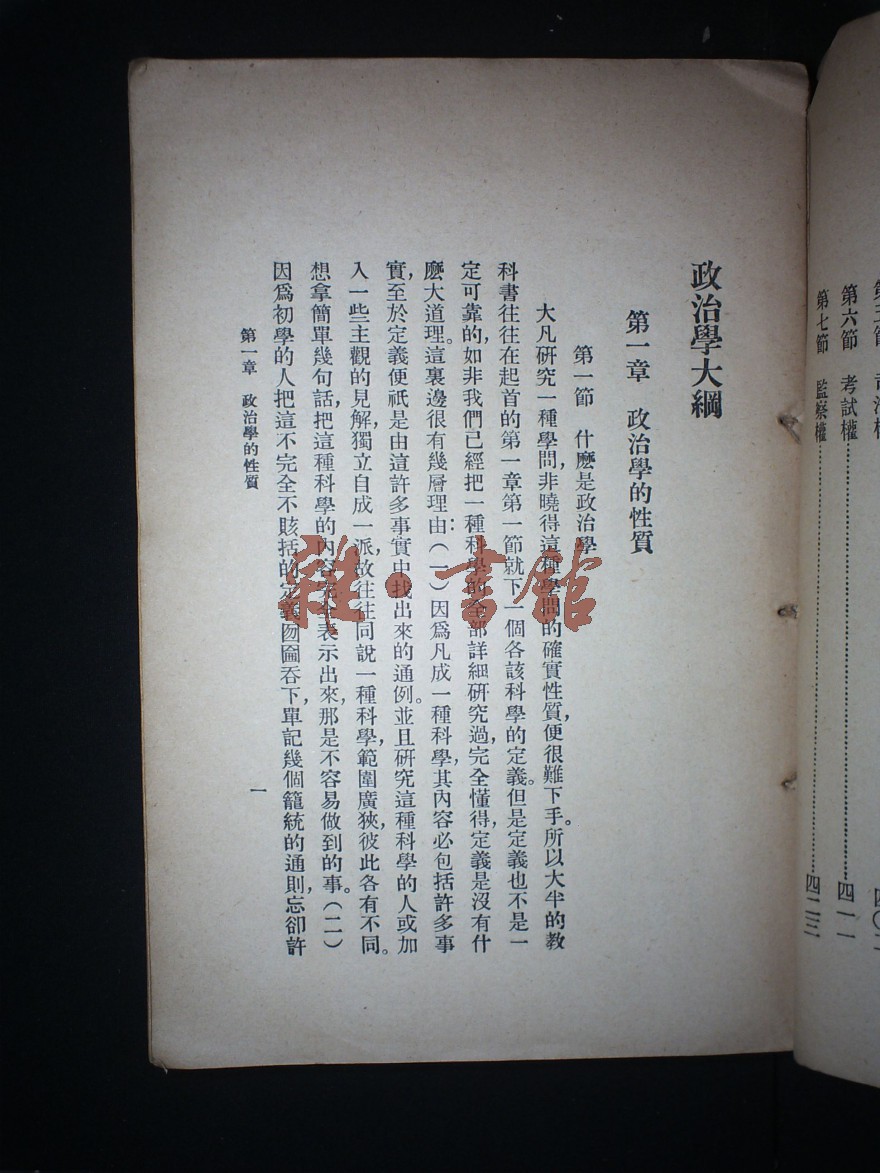 第六節 考試權……四一一
第七節 監察權……四二三
政治學大綱
第一章 政治學的性質
第一節 什麽是政治學
大凡研究一種學問，非曉得這種學問的確實性質，便很難下手。所以大半的教
科書往往在起首的第一章第一節就下一個各該科學的定義。但是定義也不是一
定可靠的，如非我們已經把一種科學的全部詳細研究過，完全懂得定義是沒有什
麽大道理。這裏邊很有幾層理由：（一）因爲凡成一種科學，其內容必包括許多事
實，至於定義便祇是由這許多事實中找出來的通例。並且研究這種科學的人或加
入一些主觀的見解，獨立自成一派，故往往同說一種科學，範圍廣狹，彼此各有不同。
想拿簡單幾句話，把這種科學的內容完全表示出來，那是不容易做到的事。（二）
因爲初學的人把這不完全不賅括的定義囫圇吞下，單記幾個籠統的通則，忘卻許
第一章 政治學的性質
一
雜·書館